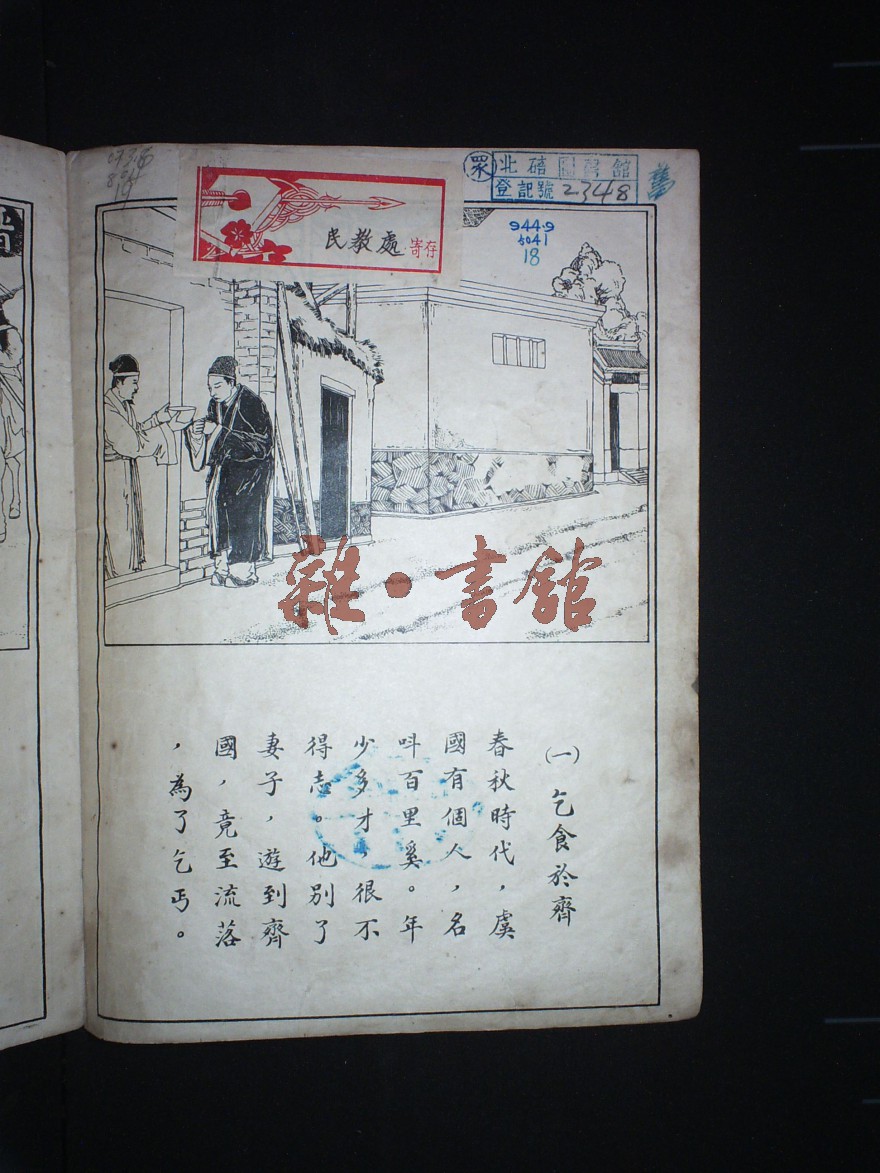 民教處 寄存
眾 北碚圖書館
登記號 2348
舊
944.9
5041
18
雜·書館
(一) 乞食於齊
春秋時代，虞
國有個人，名
呌百里奚。年
少多才，很不
得志。他別了
妻子，遊到齊
國，竟至流落
，為了乞丐。